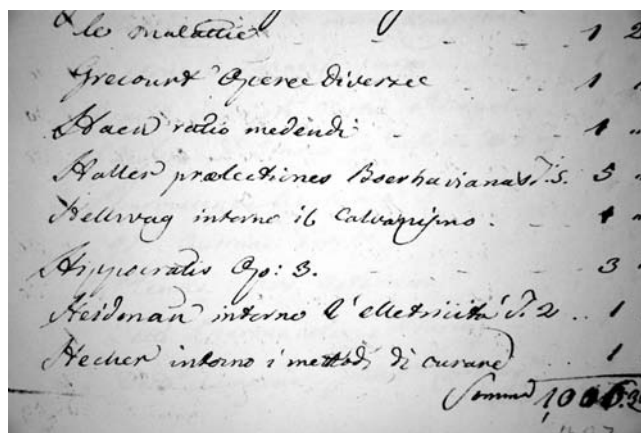 le malattie 1 2
Grecourt Operee diverzee 1 1
Haen ratio medendi 1 "
Haller prælectiones Boerhavianas T. 5. 5 "
Hellwag interno il Calvanismo. 1 "
Hippocratis Op: 3. 3 "
Heidman interno l'elletricità T. 2 .. 1
Hecker intorno i mettodi di curare 1
Somma